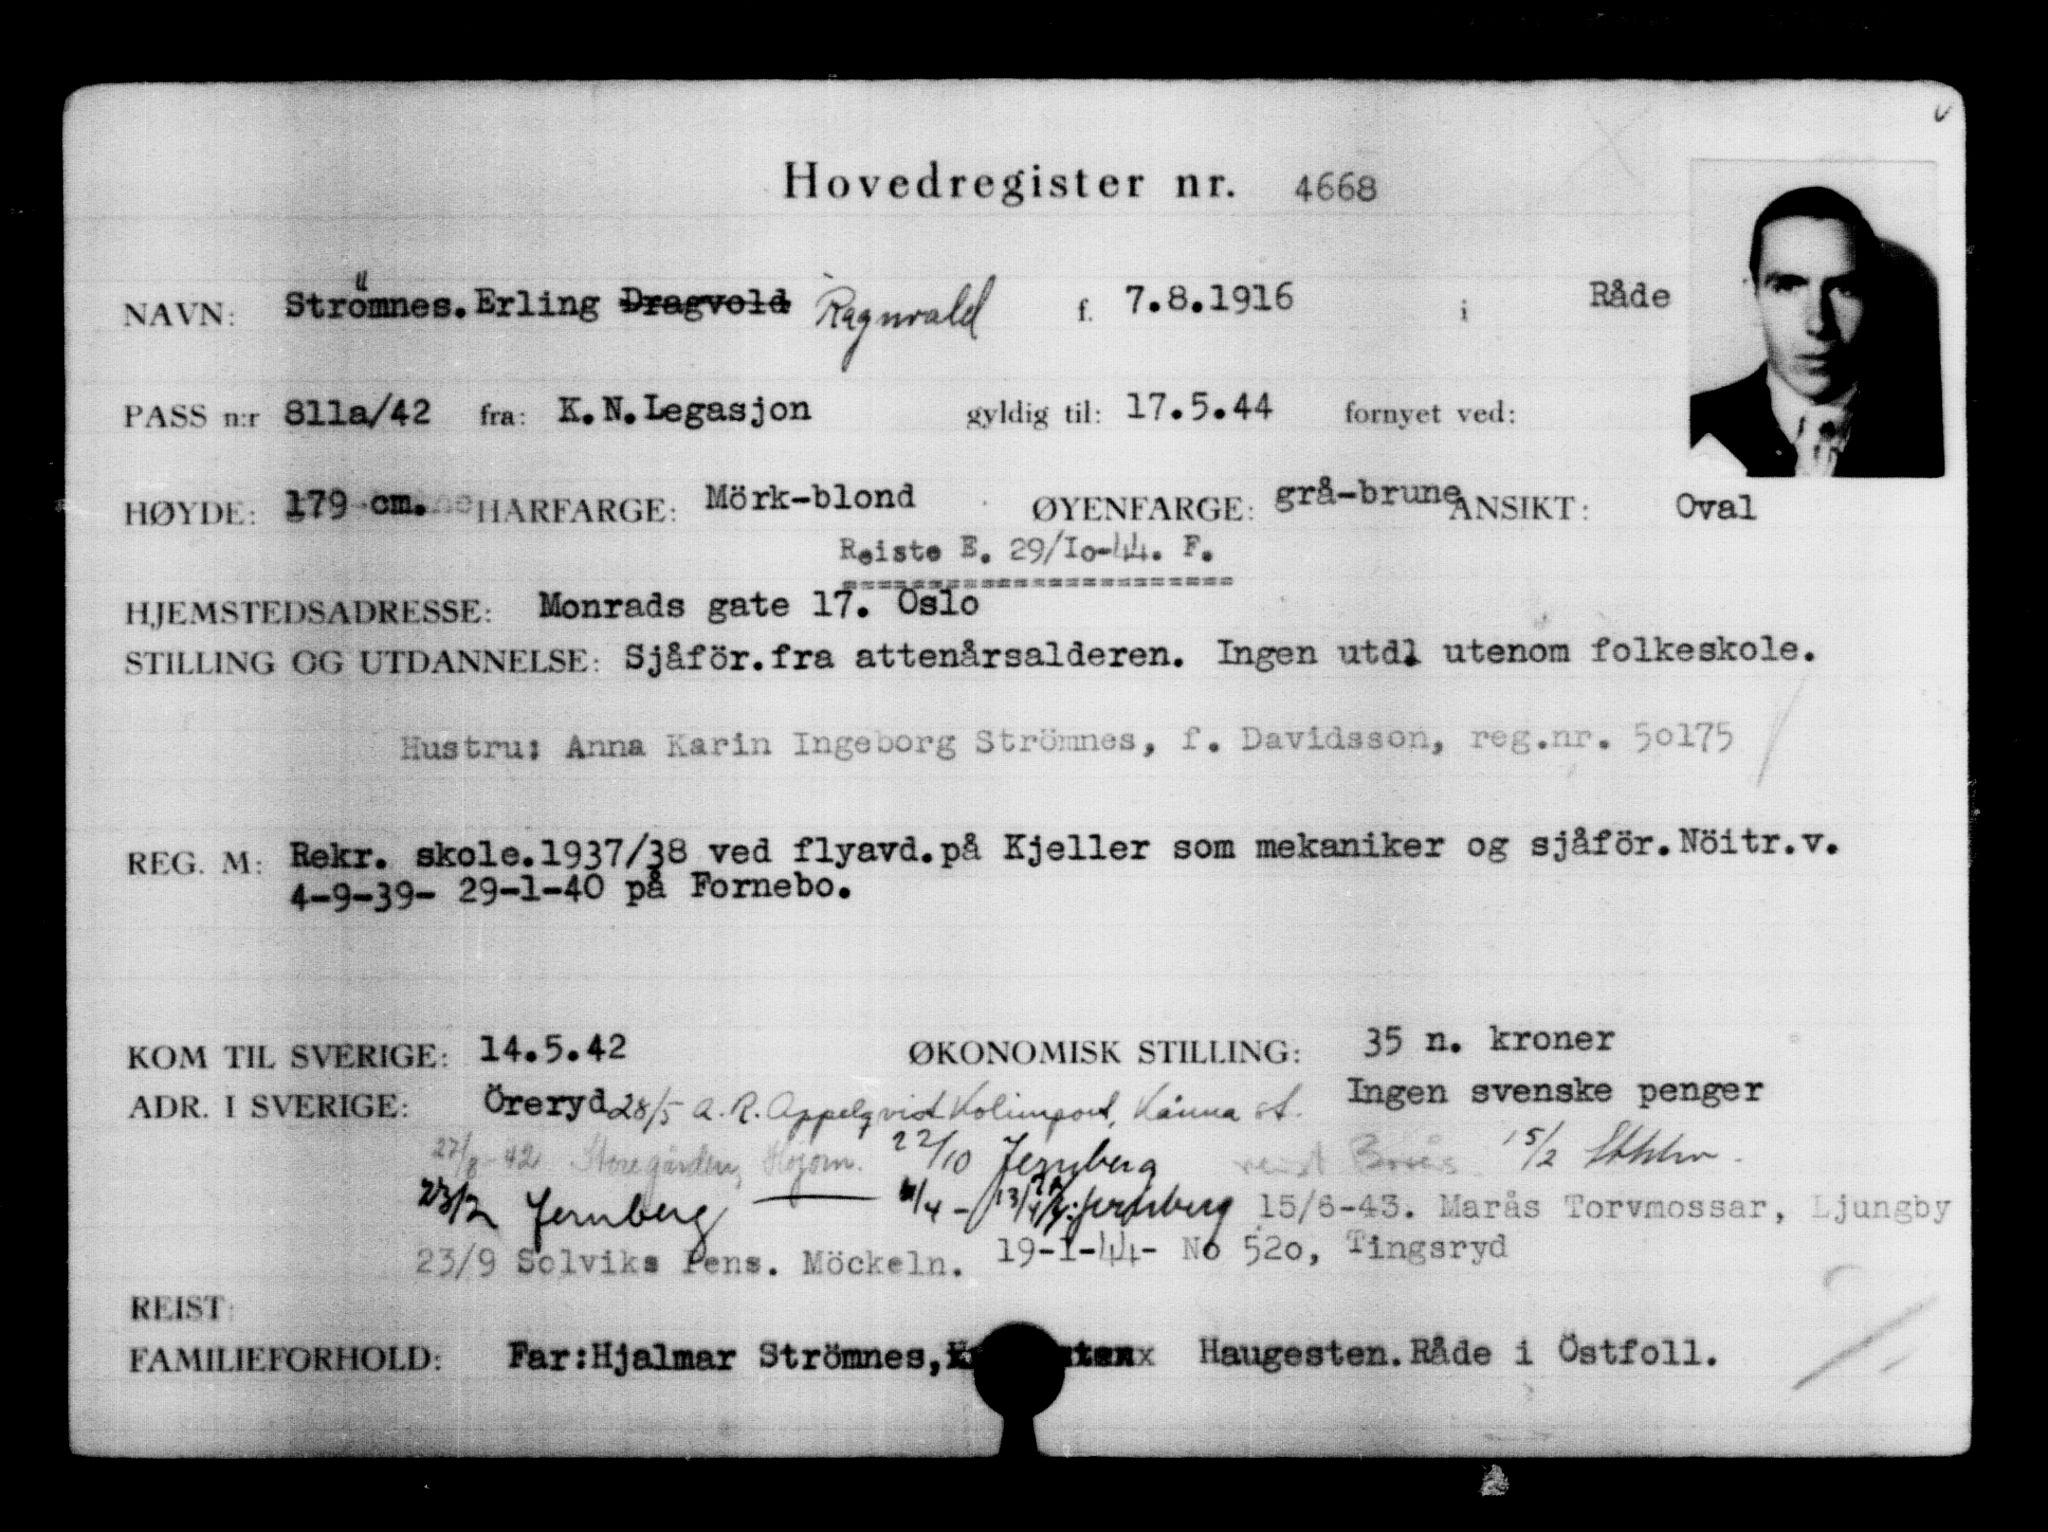 Hovedregister nr. 4668
NAVN: Strömnes. Erling Dragvold Ragnvald f. 7.8.1916 i Råde
PASS n:r 811a/42 fra: K.N.Legasjon gyldig til: 17.5.44 fornyet ved:
HØYDE: 179 cm. HARFARGE: Mörk-blond ØYENFARGE: grå-brune ANSIKT: Oval
Reiste E. 29/Io-44. F.
=======================
HJEMSTEDSADRESSE: Monrads gate 17. Oslo
STILLING OG UTDANNELSE: Sjåför.fra attenårsalderen. Ingen utdl utenom folkeskole.
Hustru: Anna Karin Ingeborg Strömnes, f. Davidsson, reg.nr. 50175
REG. M: Rekr. skole.1937/38 ved flyavd.på Kjeller som mekaniker og sjåför.Nöitr.v.
4-9-39- 29-1-40 på Fornebo.
KOM TIL SVERIGE: 14.5.42 ØKONOMISK STILLING: 35 n. kroner
ADR. I SVERIGE: Öreryd 28/5 A.R. Appelqvist Kolimport, Kånna st. Ingen svenske penger
27/8-42 Storegården, 22/10 Jernberg reist 15/2 Sthlm
23/2 Jernberg — /4 - 13/4 Jernberg 15/6-43. Marås Torvmossar, Ljungby
23/9 Solviks Pens. Möckeln. 19-1-44- No 52o, Tingsryd
REIST:
FAMILIEFORHOLD: Far:Hjalmar Strömnes, Haugesten.Råde i Östfoll.